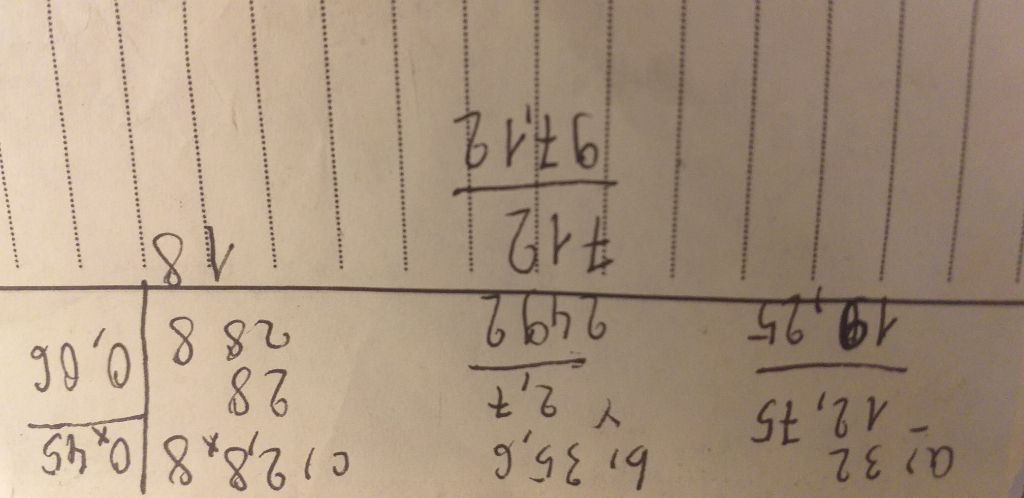 a) 32
- 12,75
19,25
b) 35,6
x 2,7
2492
712
97,12
c) 2,8x8
0,x45
28
0,06
28 8
18